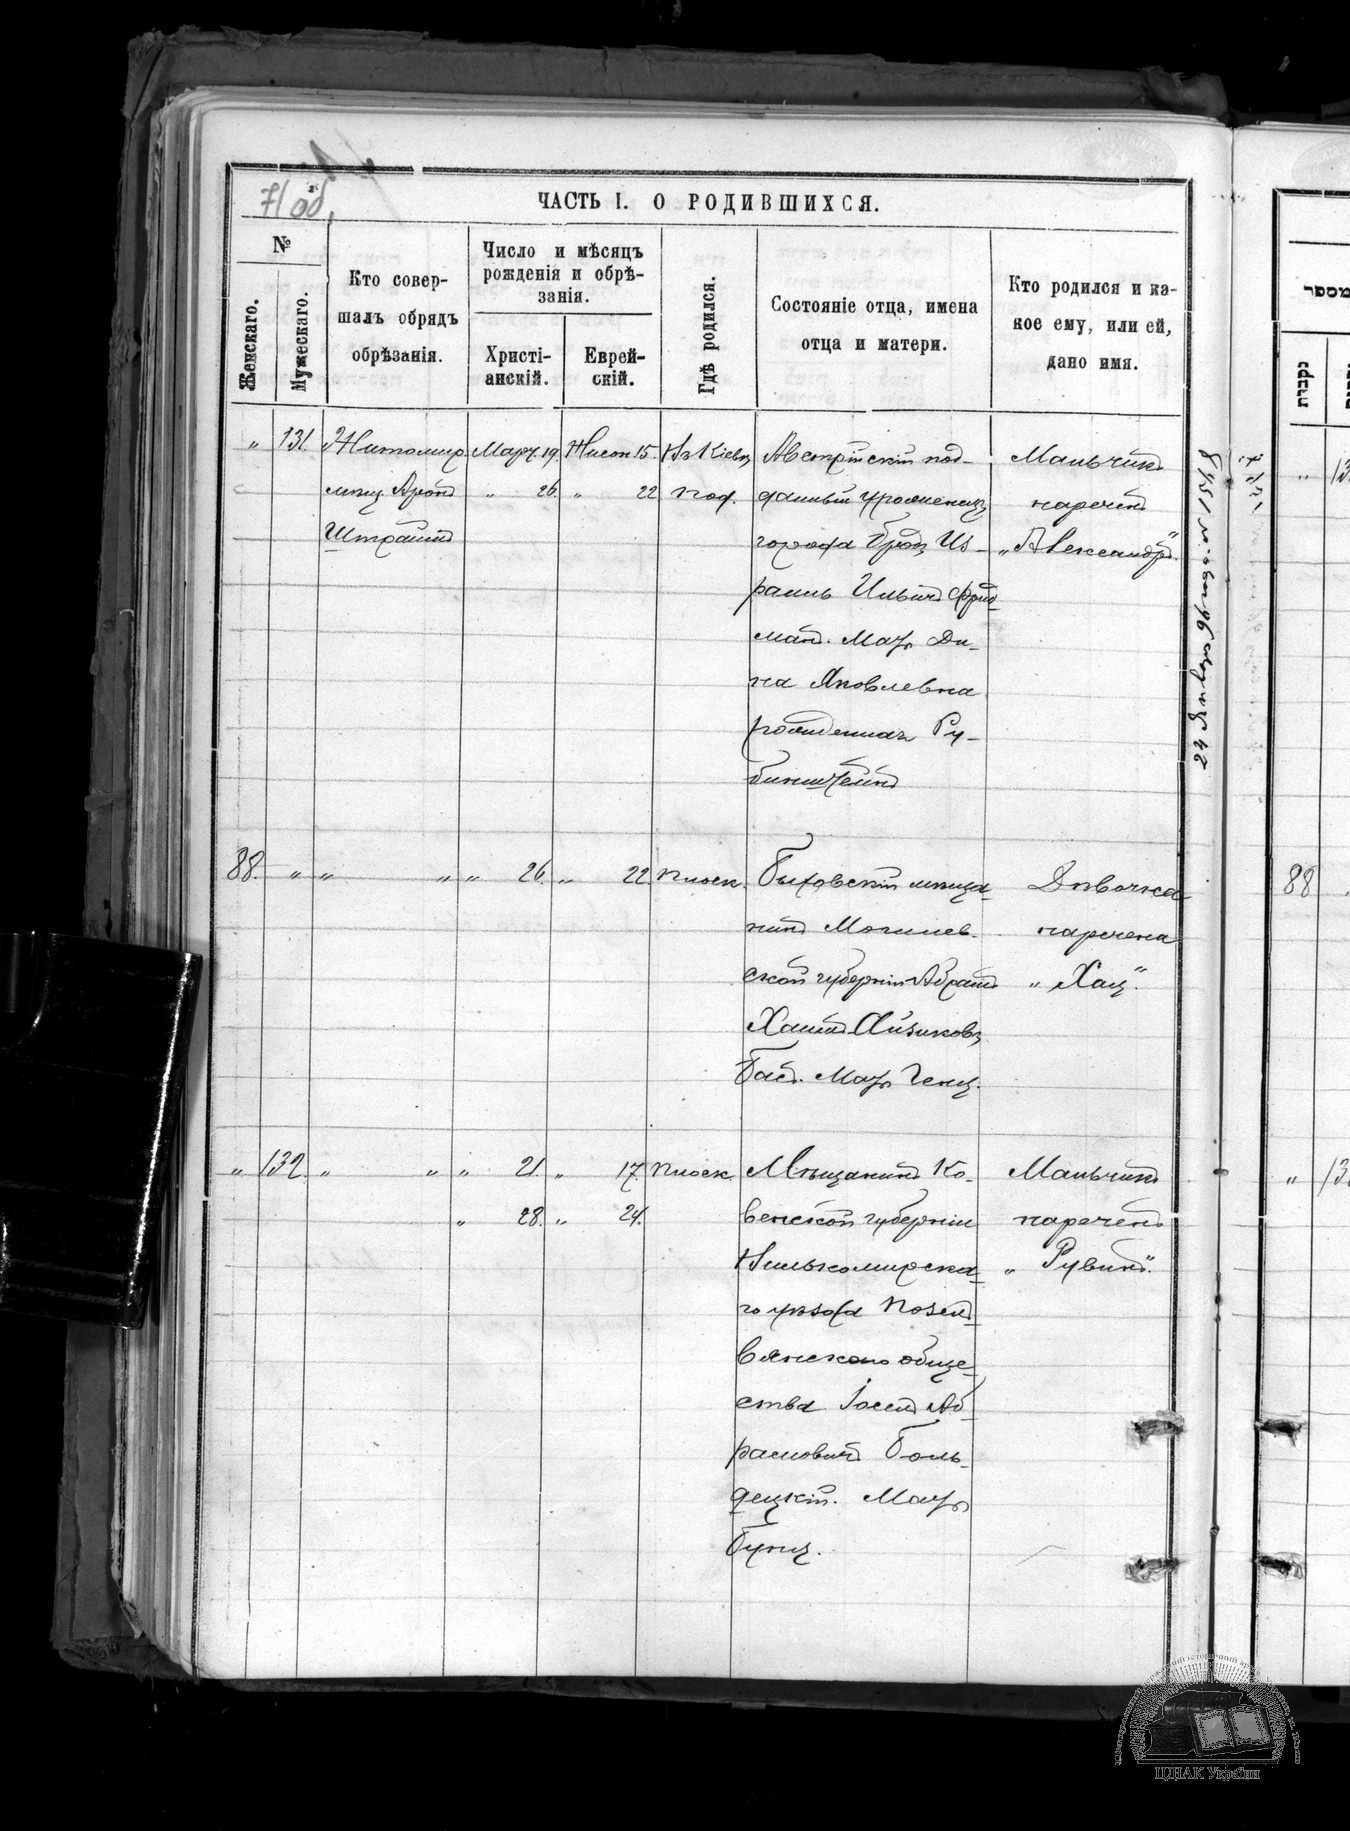 71 об.
ЧАСТЬ I. О РОДИВШИХСЯ.
№
Женскаго.
Мужескаго.
Кто совер-
шалъ обрядъ
обрѣзанія.
Число и мѣсяцъ
рожденія и обрѣ-
занія.
Христі-
анскій.
Еврей-
скій.
Гдѣ родился.
Состояніе отца, имена
отца и матери.
Кто родился и ка-
кое ему, или ей,
дано имя.
„ 131.
Житомир.
мѣщ Аронъ
Штраймъ
Март. 19. Нисон 15.
„ 26. „ 22
Кіевѣ
Под.
Австрійскій под-
данный уроженецъ
города Броды Из-
раиль Ильичъ Фрид
манъ. Мать Ди-
на Яковлевна
рожденная Ру-
бинштейнъ
Мальчикъ
нареченъ
„Александръ"
88. „ „ „ „ 26. „ 22. Плоск.
Быховскій мѣща-
нинъ Могилев-
ской губерніи Абрамъ
Хаимъ Айзиковъ
Басъ. Мать Геня.
Дѣвочка
наречена
„Хая".
„ 132. „ „ „ 21. „ 17. Плоск.
„ 28. „ 24.
Мѣщанинъ Ко-
венской губерніи
Вилькомирска-
го уѣзда
вянскаго обще-
ства Іосель Аб-
рамовичъ Боль-
децкій. Мать
Буня.
Мальчикъ
нареченъ
„Рувинъ".
מספר
נקבות
„
88
„
ЦДІАК України